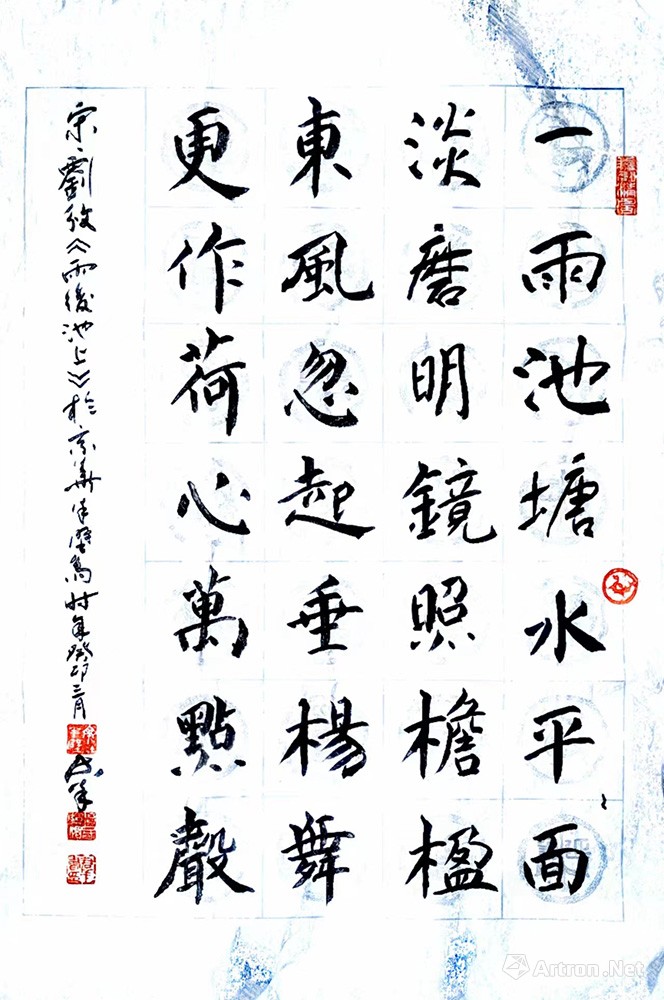 一雨池塘水平面
淡磨明鏡照檐楹
東風忽起垂楊舞
更作荷心萬點聲
宋·劉攽《雨後池上》於京華時年癸卯三月
Artron.Net